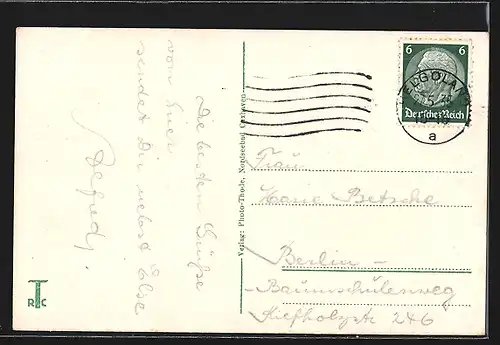 Die besten Grüße
von hier
sendet Dir nebst Else
Alfred.
Verlag: Photo-Thode, Nordseebad Cuxhaven
6 6
Deutsches Reich
HELGOLAND
a
Frau
Marie Betschke
Berlin –
Baumschulenweg
Kiefholzstr 246
R T C